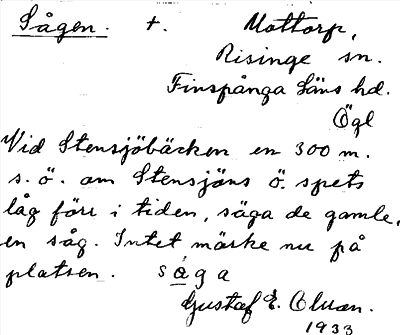 Sågen. +. Mottorp,
Risinge sn.
Finspånga Läns hd.
Ögl
Vid Stensjöbäcken en 300 m.
s. ö. om Stensjöns ö. spets
låg förr i tiden, säga de gamle,
en såg. Intet märke nu på
platsen. såga
Gustaf E. Olsson.
1933